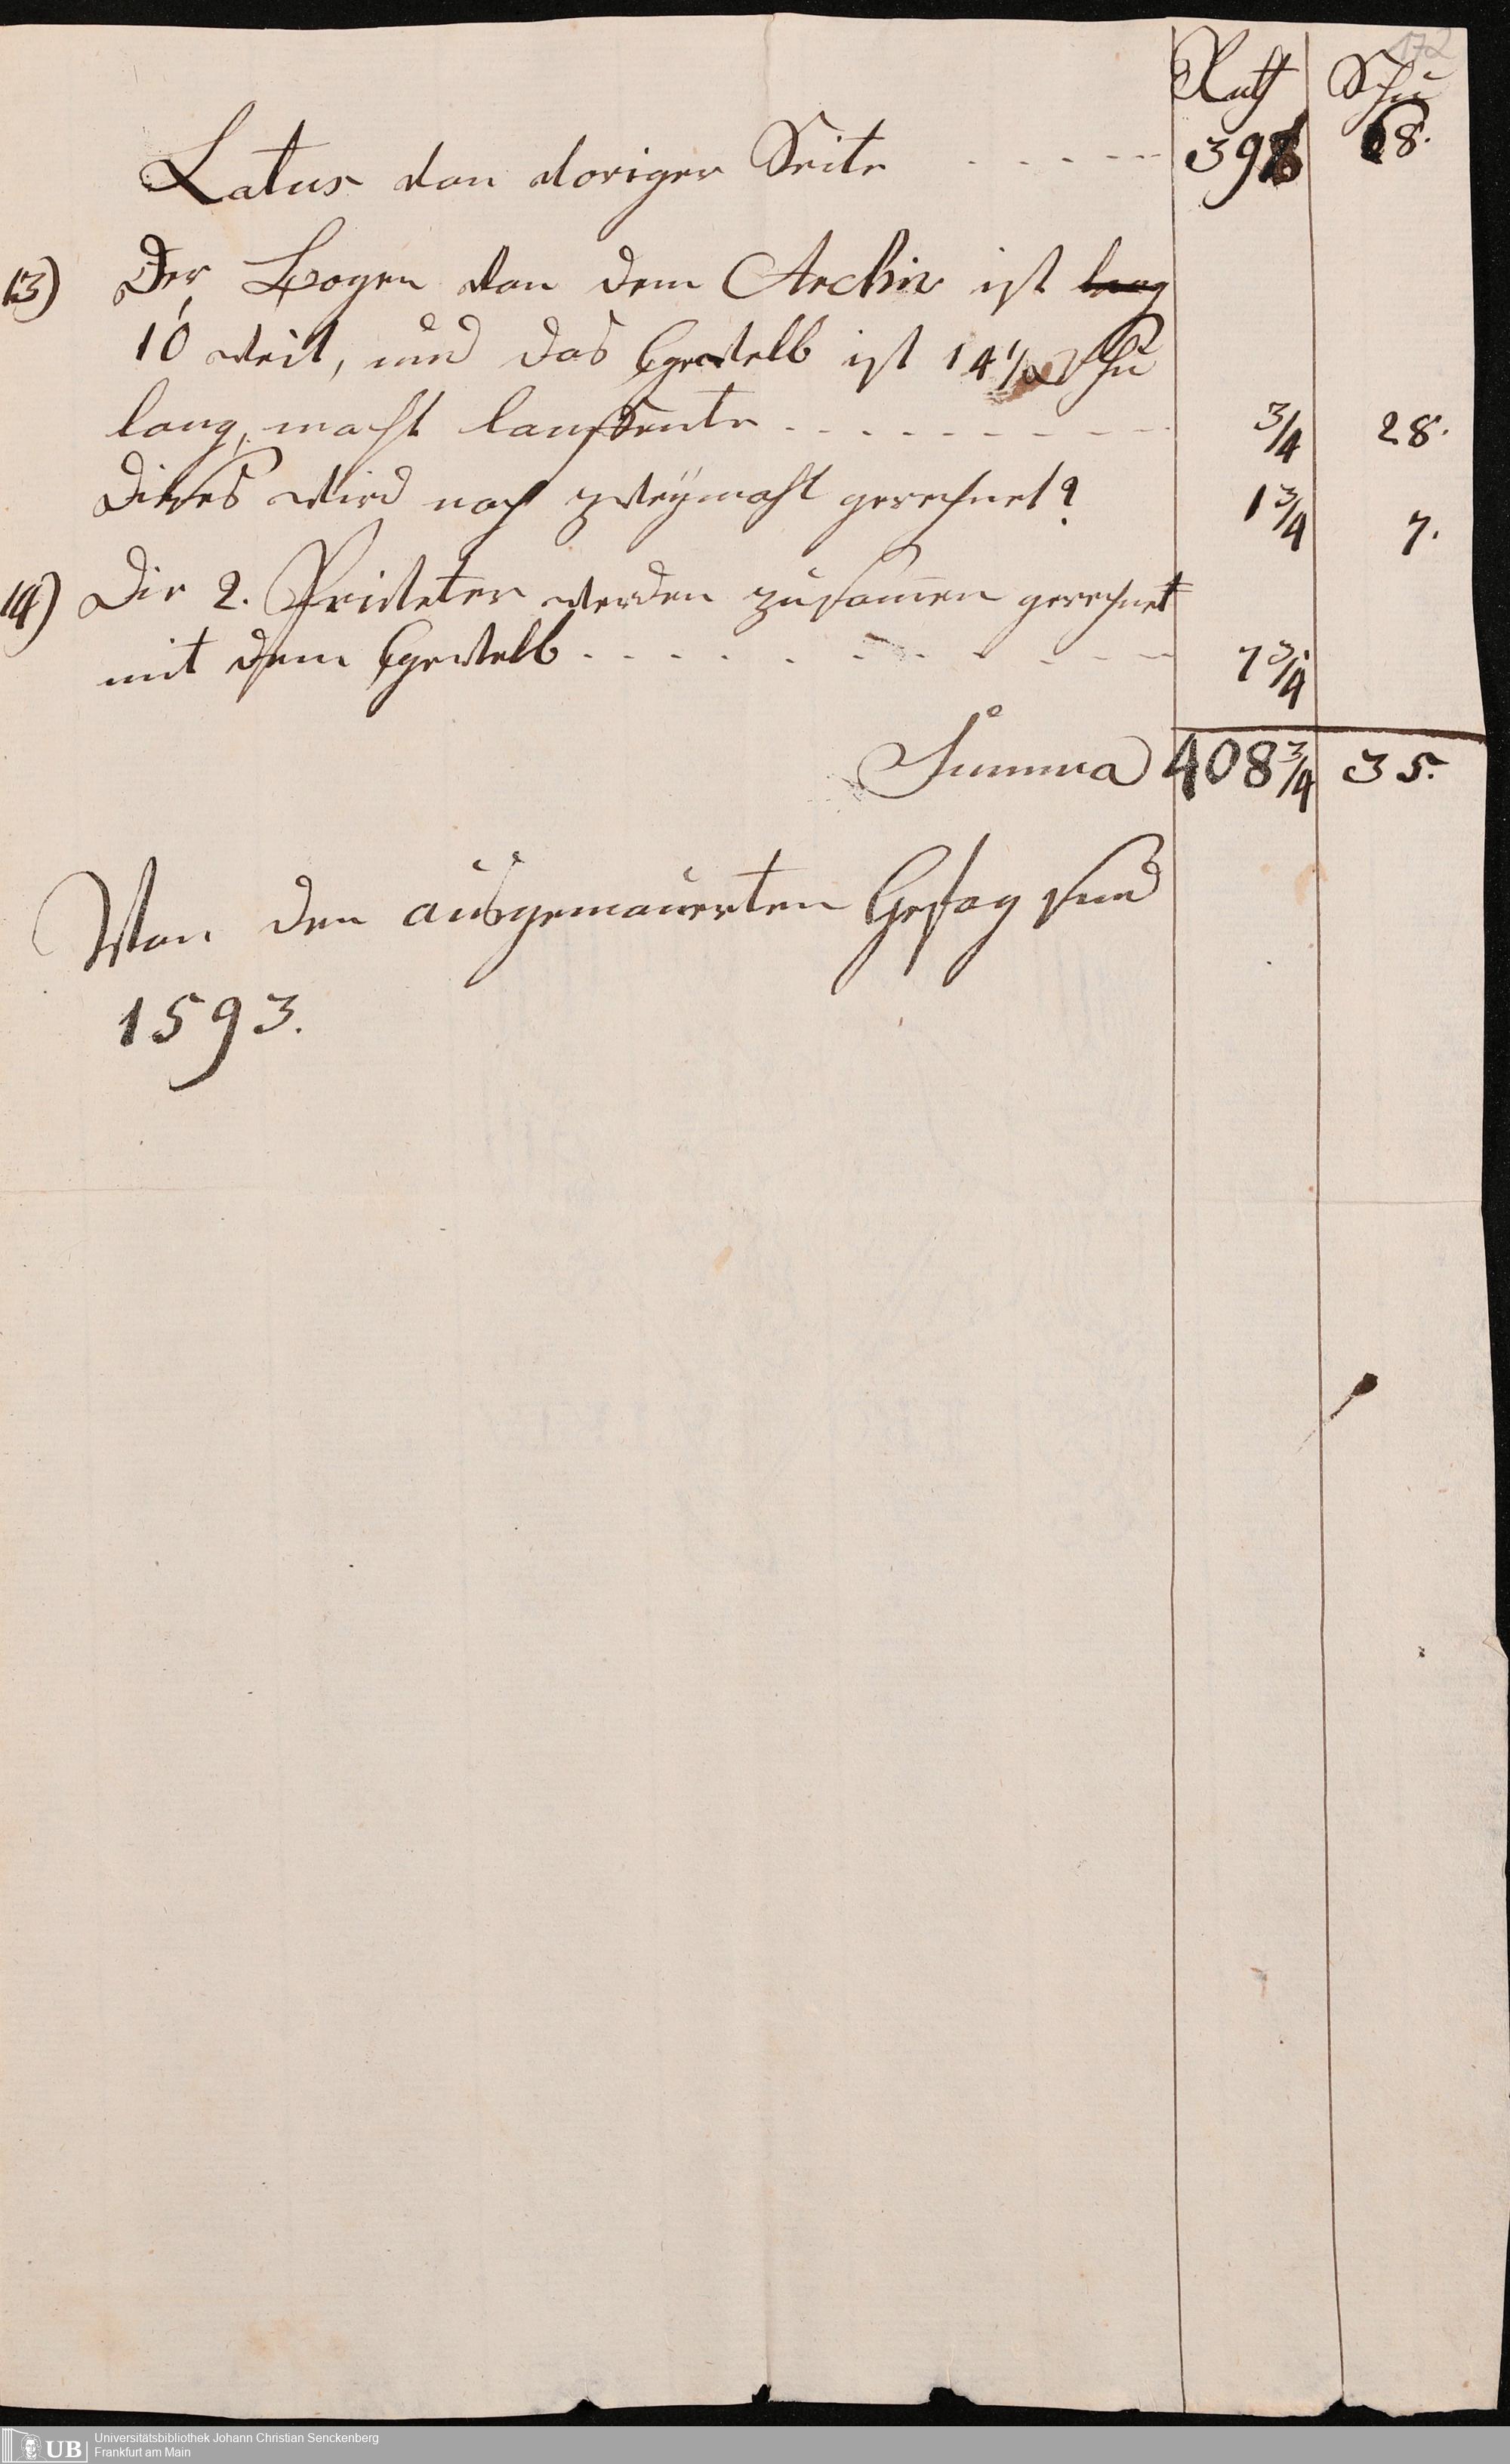 172
Ruth Schu
Latus von voriger Seite - - - - - 398 68.
13) Der Bogen von dem Archiv ist lang
10' weit, und das Gewelb ist 14 1/2 Schu
lang, macht lauffente - - - - - - - - 3/4 28.
Dieses wird noch zweÿmahl gerechnet? 1 3/4 7.
14) Die 2. Priveter werden zusam̄en gerechnet
mit dem Gewelb - - - - - - - - - - - 7 3/4
Summa 408 3/4 35.
Von den ausgemauerten Gefag sind
1593.
UB Universitätsbibliothek Johann Christian Senckenberg
Frankfurt am Main